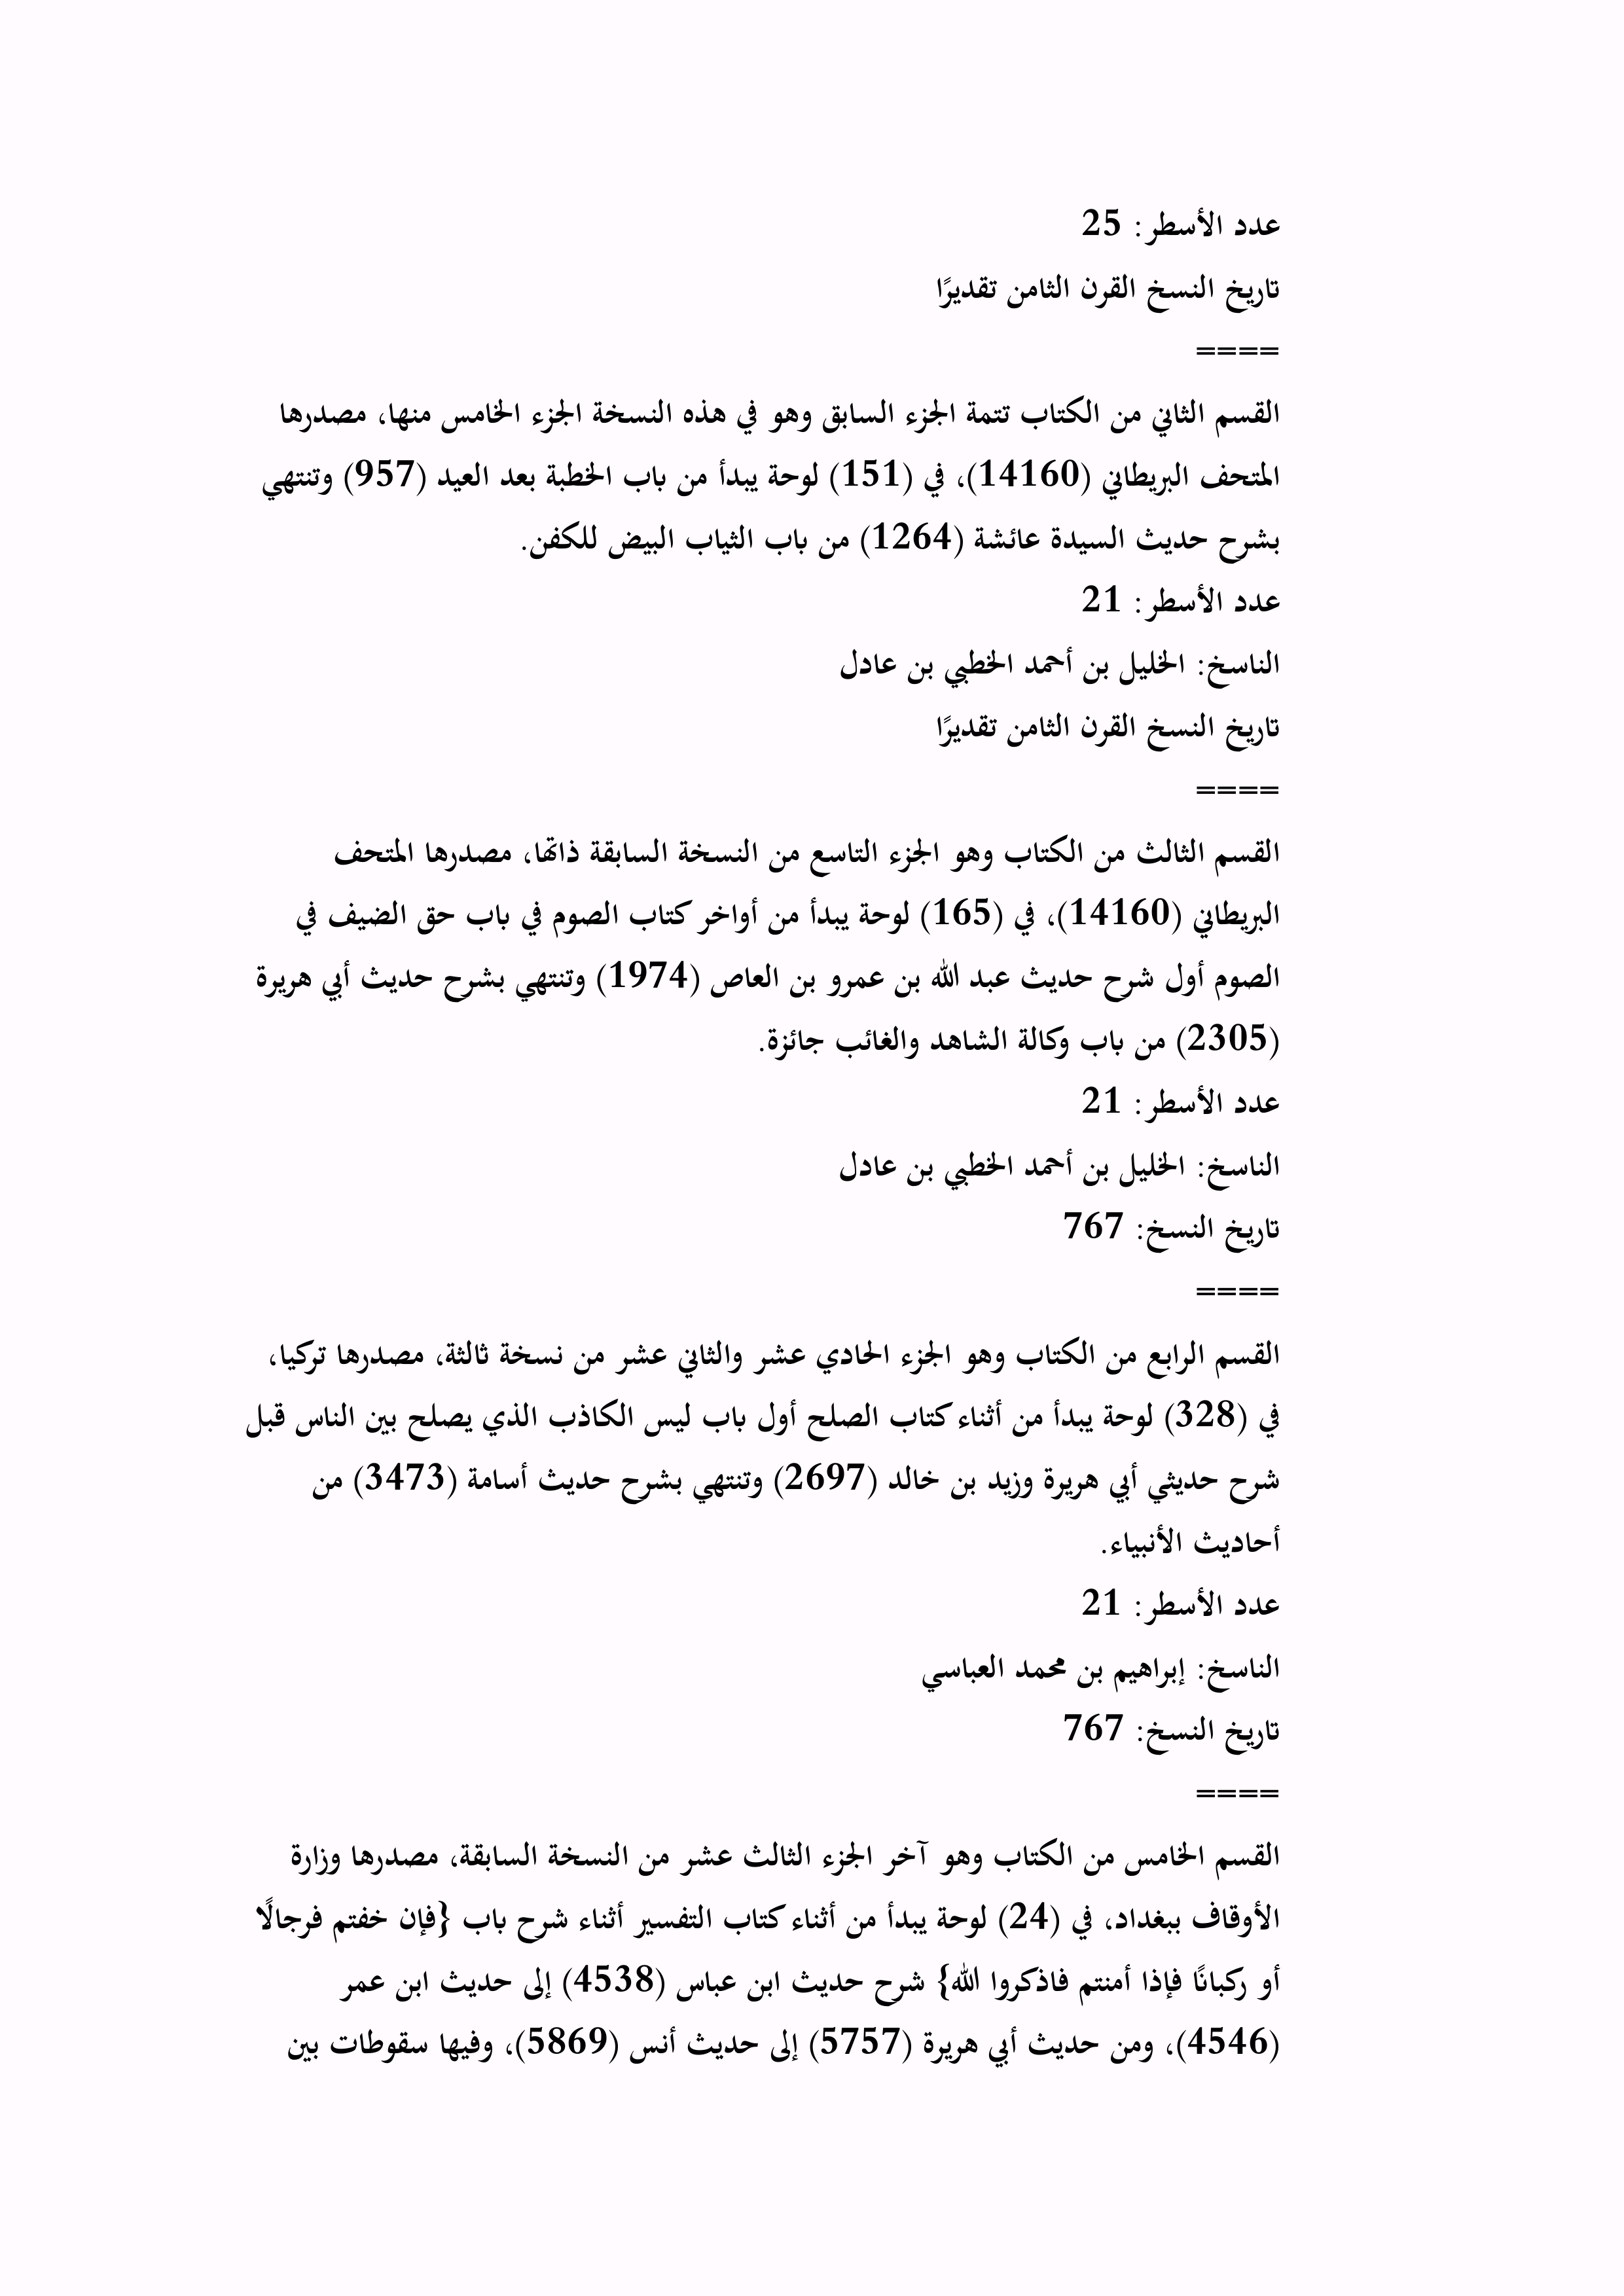 عدد الأسطر: 25
تاريخ النسخ القرن الثامن تقديرًا
====
القسم الثاني من الكتاب تتمة الجزء السابق وهو في هذه النسخة الجزء الخامس منها، مصدرها
المتحف البريطاني (14160)، في (151) لوحة يبدأ من باب الخطبة بعد العيد (957) وتنتهي
بشرح حديث السيدة عائشة (1264) من باب الثياب البيض للكفن.
عدد الأسطر: 21
الناسخ: الخليل بن أحمد الخطبي بن عادل
تاريخ النسخ القرن الثامن تقديرًا
====
القسم الثالث من الكتاب وهو الجزء التاسع من النسخة السابقة ذاتها، مصدرها المتحف
البريطاني (14160)، في (165) لوحة يبدأ من أواخر كتاب الصوم في باب حق الضيف في
الصوم أول شرح حديث عبد الله بن عمرو بن العاص (1974) وتنتهي بشرح حديث أبي هريرة
(2305) من باب وكالة الشاهد والغائب جائزة.
عدد الأسطر: 21
الناسخ: الخليل بن أحمد الخطبي بن عادل
تاريخ النسخ: 767
====
القسم الرابع من الكتاب وهو الجزء الحادي عشر والثاني عشر من نسخة ثالثة، مصدرها تركيا،
في (328) لوحة يبدأ من أثناء كتاب الصلح أول باب ليس الكاذب الذي يصلح بين الناس قبل
شرح حديثي أبي هريرة وزيد بن خالد (2697) وتنتهي بشرح حديث أسامة (3473) من
أحاديث الأنبياء.
عدد الأسطر: 21
الناسخ: إبراهيم بن محمد العباسي
تاريخ النسخ: 767
====
القسم الخامس من الكتاب وهو آخر الجزء الثالث عشر من النسخة السابقة، مصدرها وزارة
الأوقاف ببغداد، في (24) لوحة يبدأ من أثناء كتاب التفسير أثناء شرح باب {فإن خفتم فرجالًا
أو ركبانًا فإذا أمنتم فاذكروا الله} شرح حديث ابن عباس (4538) إلى حديث ابن عمر
(4546)، ومن حديث أبي هريرة (5757) إلى حديث أنس (5869)، وفيها سقوطات بين